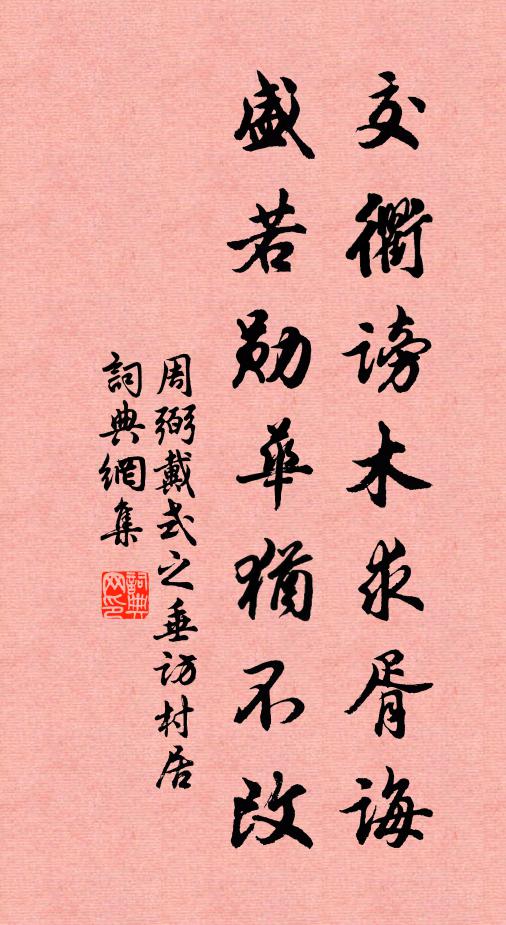 交衢谤木求胥诲
盛若勋华犹不改
周弼戴式之垂访村居
词典网集
词典网印